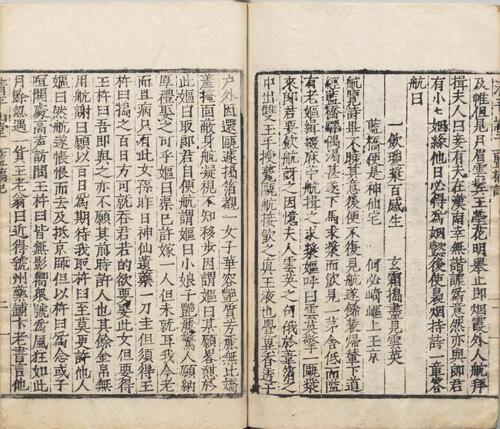 及帷但見月眉雲鬢玉瑩花明舉止即烟霞外人航拜
揖夫人曰妾有夫在漢南幸無諧謔為意然亦與郎君
有小小姻緣他日必得為姻懿後使裊烟持詩一章答
航曰
一飲瓊漿百感生　玄霜搗盡見雲英
藍橋便是神仙宅　何必崎嶇上玉京
航覽詩畢不曉其意後便不復見航遂餙裝歸輦下道
經藍橋驛偶渴甚遂下馬求漿而飲見一茅舍低而隘
有老嫗緝績麻苧航揖之求漿嫗呼曰雲英擎一甌漿
來郎君要飲航訝之因憶夫人雲英之句俄於葦箔之
中出雙玉手捧瓷甌航接飲之真玉液也覺異香透于
戶外因還甌遽揭箔視一女子華容艷質芳麗無比嬌
羞掩面蔽身航凝視不知移步因謂嫗曰某願畧憇於
此嫗曰取郎君自便航謂嫗曰小娘子艷麗驚人願納
厚禮娶之可乎嫗曰渠已許嫁一人但未就耳我今老
而且病只有此女孫昨日神仙遺藥一刀圭但須得玉
杵臼搗之百日方可就吞君若的欲要娶此女但要得
玉杵臼吾即與之亦不顧其前時許人也其餘金帛無
用航謝曰願以百日為期待我取杵臼至莫更許他人
嫗曰然航遂悵恨而去及抵京師但以杵臼為念或于
喧鬨處高聲訪問玉杵臼皆無影響眾號為風狂如此
月餘忽遇一貨玉老翁曰近得虢州藥鋪卞老書言他